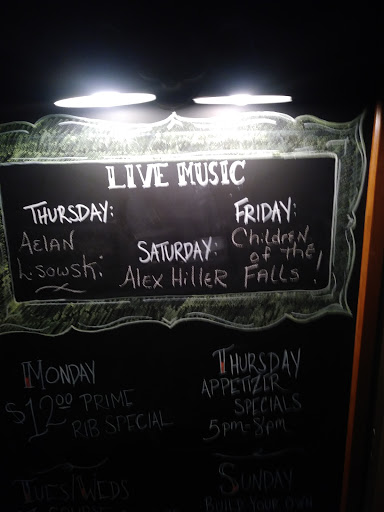 LIVE MUSIC
THURSDAY:
AElAN
LisowSki
SATURDAY:
AlEX HillER
FRiDAY:
ChildREN
of the
FAlls!
MONDAY
$12.00 PRIME
RIB SPECIAL
THURSDAY
APPETIZER
SPECIALS
5pm-8pm
TUES/WEDS
SUNDAY
BUILD YOUR OWN